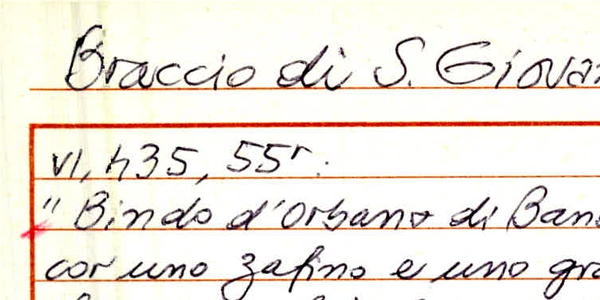 Braccio di S. Giova
VI, 435, 55r.
"Bindo d'Orbano di Ban
cor uno zafino e uno gra